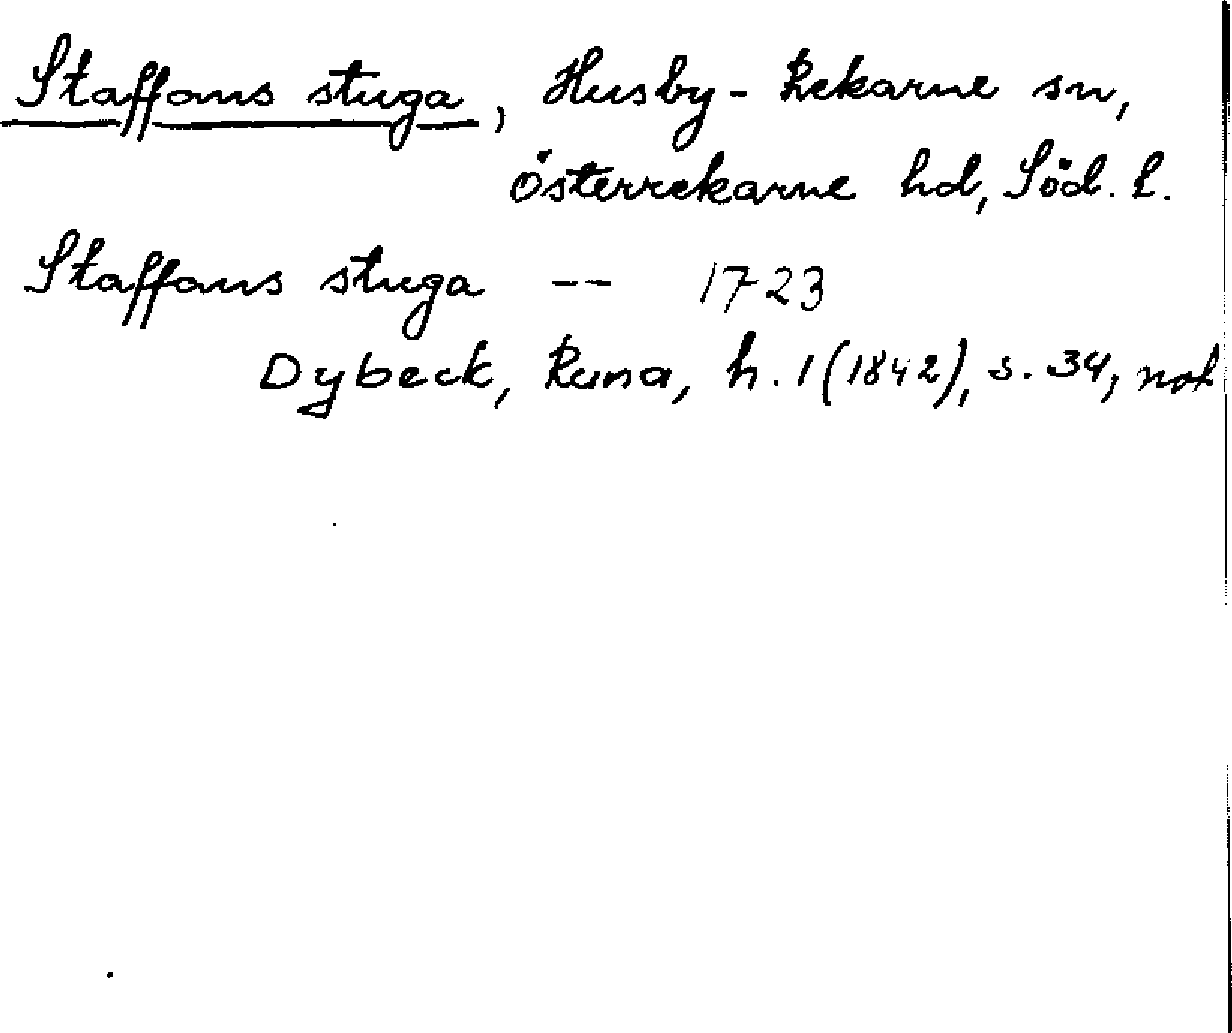 Staffans stuga, Husby-Rekarne sn,
Österrekarne hd, Söd. l.
Staffans stuga -- 1723
Dybeck, Runa, h. 1 (1842), s. 34, not